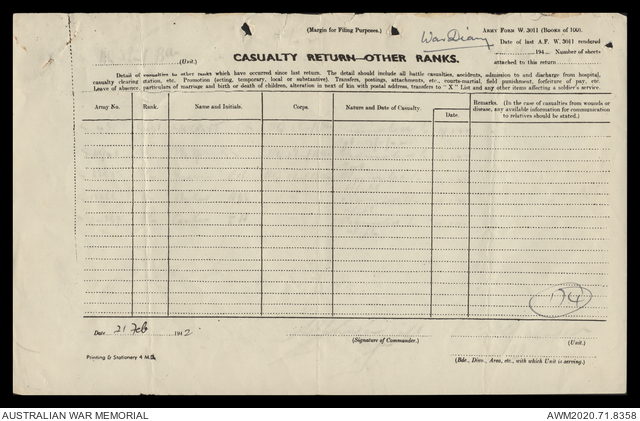 (Margin for Filing Purposes.)
ARMY FORM W. 3011 (BOOKS of 100).
War Diary
Date of last A.F. W. 3011 rendered
194 Number of sheets
(Unit.)
CASUALTY RETURN—OTHER RANKS.
attached to this return
Detail of casualties to other ranks which have occurred since last return. The detail should include all battle casualties, accidents, admission to and discharge from hospital,
casualty clearing station, etc. Promotion (acting, temporary, local or substantive). Transfers, postings, attachments, etc., courts-martial, field punishment, forfeiture of pay, etc.
Leave of absence, particulars of marriage and birth or death of children, alteration in next of kin with postal address, transfers to "X" List and any other items affecting a soldier's service.
Army No.
Rank.
Name and Initials.
Corps.
Nature and Date of Casualty.
Date.
Remarks. (In the case of casualties from wounds or
disease, any available information for communication
to relatives should be stated.)
174
Date 21 Feb 1942.
(Signature of Commander.)
(Unit.)
Printing & Stationery 4 M.D.
(Bde., Divn., Area, etc., with which Unit is serving.)
AUSTRALIAN WAR MEMORIAL
AWM2020.71.8358